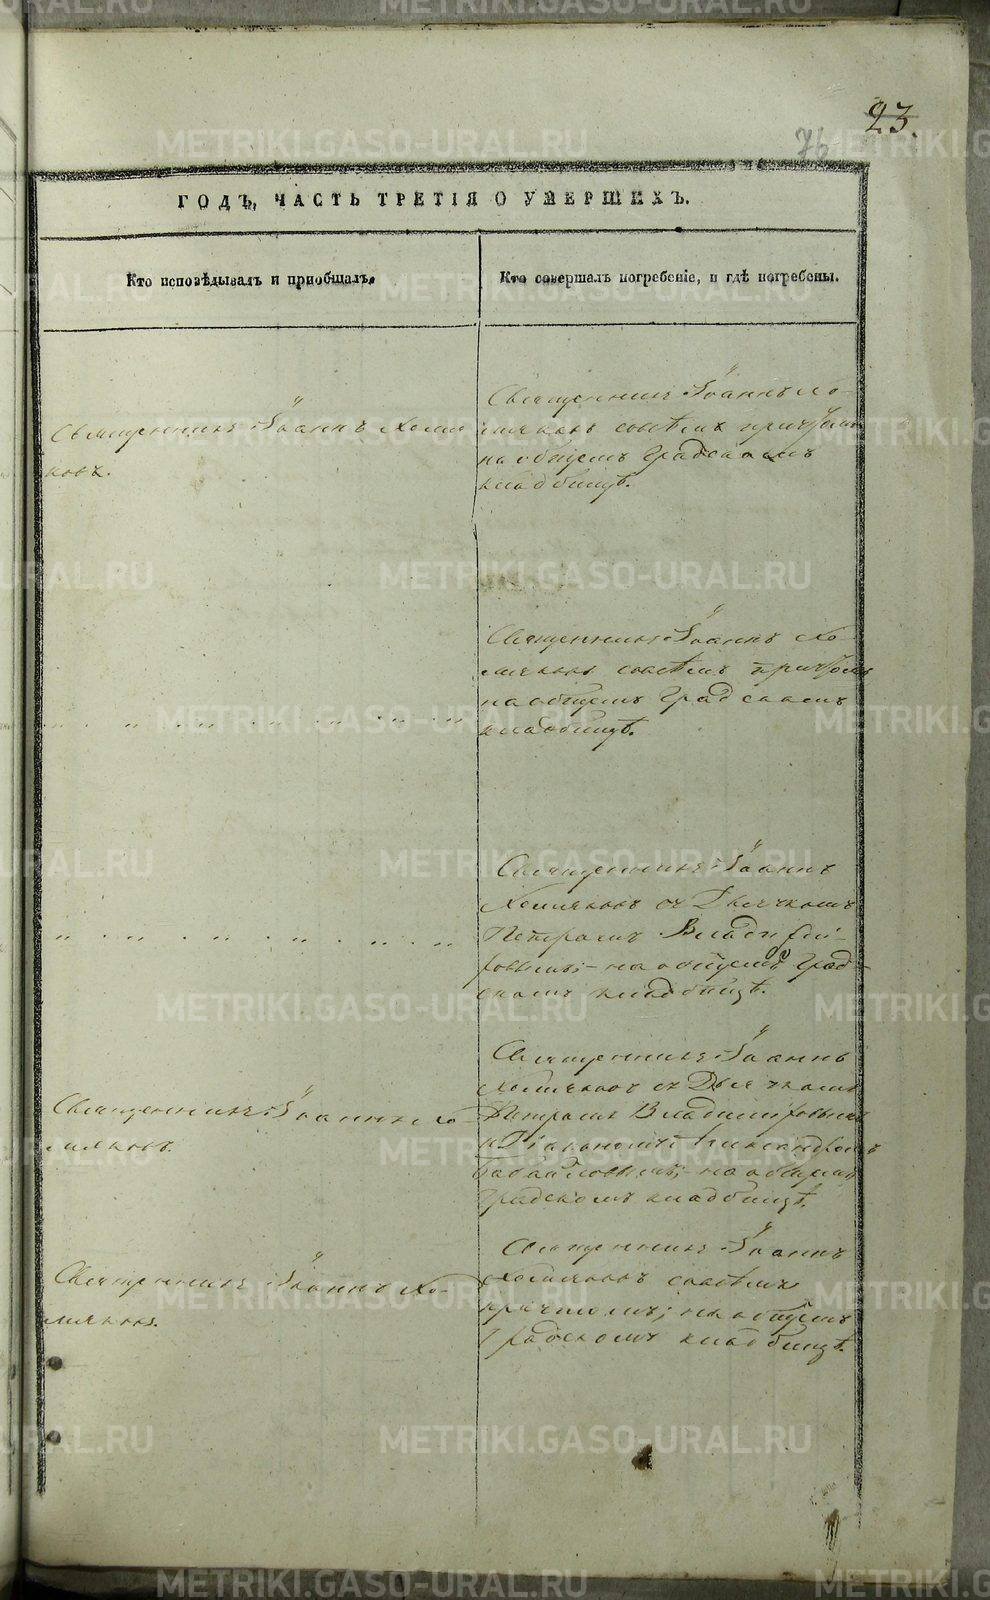 23.
76
ГОДЪ, ЧАСТЬ ТРЕТІЯ О УМЕРШИХЪ.
Кто исповѣдывалъ и приобщалъ.
Кто совершалъ погребеніе, и гдѣ погребены.
Священникъ Іоаннъ Холмя-
ковъ.
Священникъ Іоаннъ Хо-
лмяковъ совсѣмъ причтомъ
на общемъ Градскомъ
кладбищѣ.
Священникъ Іоаннъ Хо-
лмяковъ совсѣмъ причтомъ
на общемъ Градскомъ
кладбищѣ.
Священникъ Іоаннъ
Холмяковъ съ Дьячкомъ
Петромъ Владимі-
ровымъ; - на общемъ Град-
скомъ кладбищѣ.
Священникъ Іоаннъ Хо-
лмяковъ.
Священникъ Іоаннъ
Холмяковъ съ Дьячкомъ
Петромъ Владиміровымъ
и Діакономъ Александромъ
на общемъ
Градскомъ кладбищѣ.
Священникъ Іоаннъ Хо-
лмяковъ.
Священникъ Іоаннъ
Холмяковъ совсѣмъ
причтомъ; на общемъ
Градскомъ кладбищѣ.
METRIKI.GASO-URAL.RU